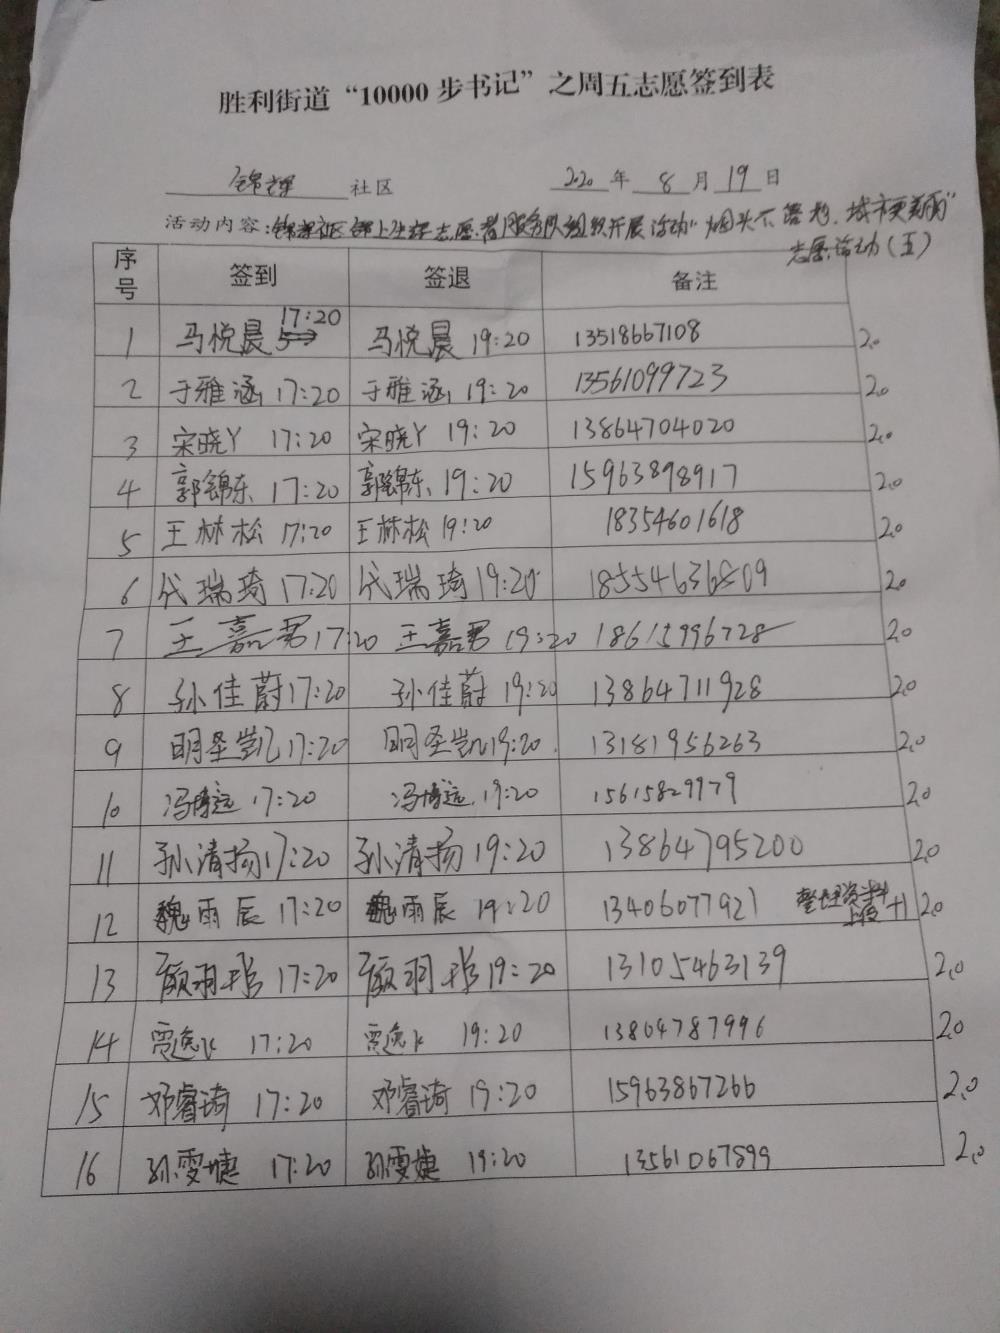 胜利街道“10000 步书记”之周五志愿签到表
锦辉 社区 2020 年 8 月 19 日
活动内容：锦辉社区锦上生辉志愿者服务队组织开展活动“烟头不落地，城市更美丽”
志愿活动（五）
序号 签到 签退 备注
1 马悦晨 17:20 马悦晨 19:20 13518667108 2.0
2 于雅涵 17:20 于雅涵 19:20 13561099723 2.0
3 宋晓丫 17:20 宋晓丫 19:20 13864704020 2.0
4 郭锦东 17:20 郭锦东 19:20 15963898917 2.0
5 王林松 17:20 王林松 19:20 18354601618 2.0
6 代瑞琦 17:20 代瑞琦 19:20 2.0
7 王嘉君 17:20 王嘉君 19:20 18615996728 2.0
8 孙佳蔚 17:20 孙佳蔚 19:20 13864711928 2.0
9 明圣凯 17:20 明圣凯 19:20 13181956263 2.0
10 冯博远 17:20 冯博远 19:20 15615829979 2.0
11 孙清扬 17:20 孙清扬 19:20 13864795200 2.0
12 魏雨辰 17:20 魏雨辰 19:20 13406077921 整理资料 +1 2.0
13 17:20 19:20 13105463139 2.0
14 17:20 19:20 13864787996 2.0
15 邓睿琦 17:20 邓睿琦 19:20 15963867266 2.0
16 孙雯婕 17:20 孙雯婕 19:20 13561067899 2.0